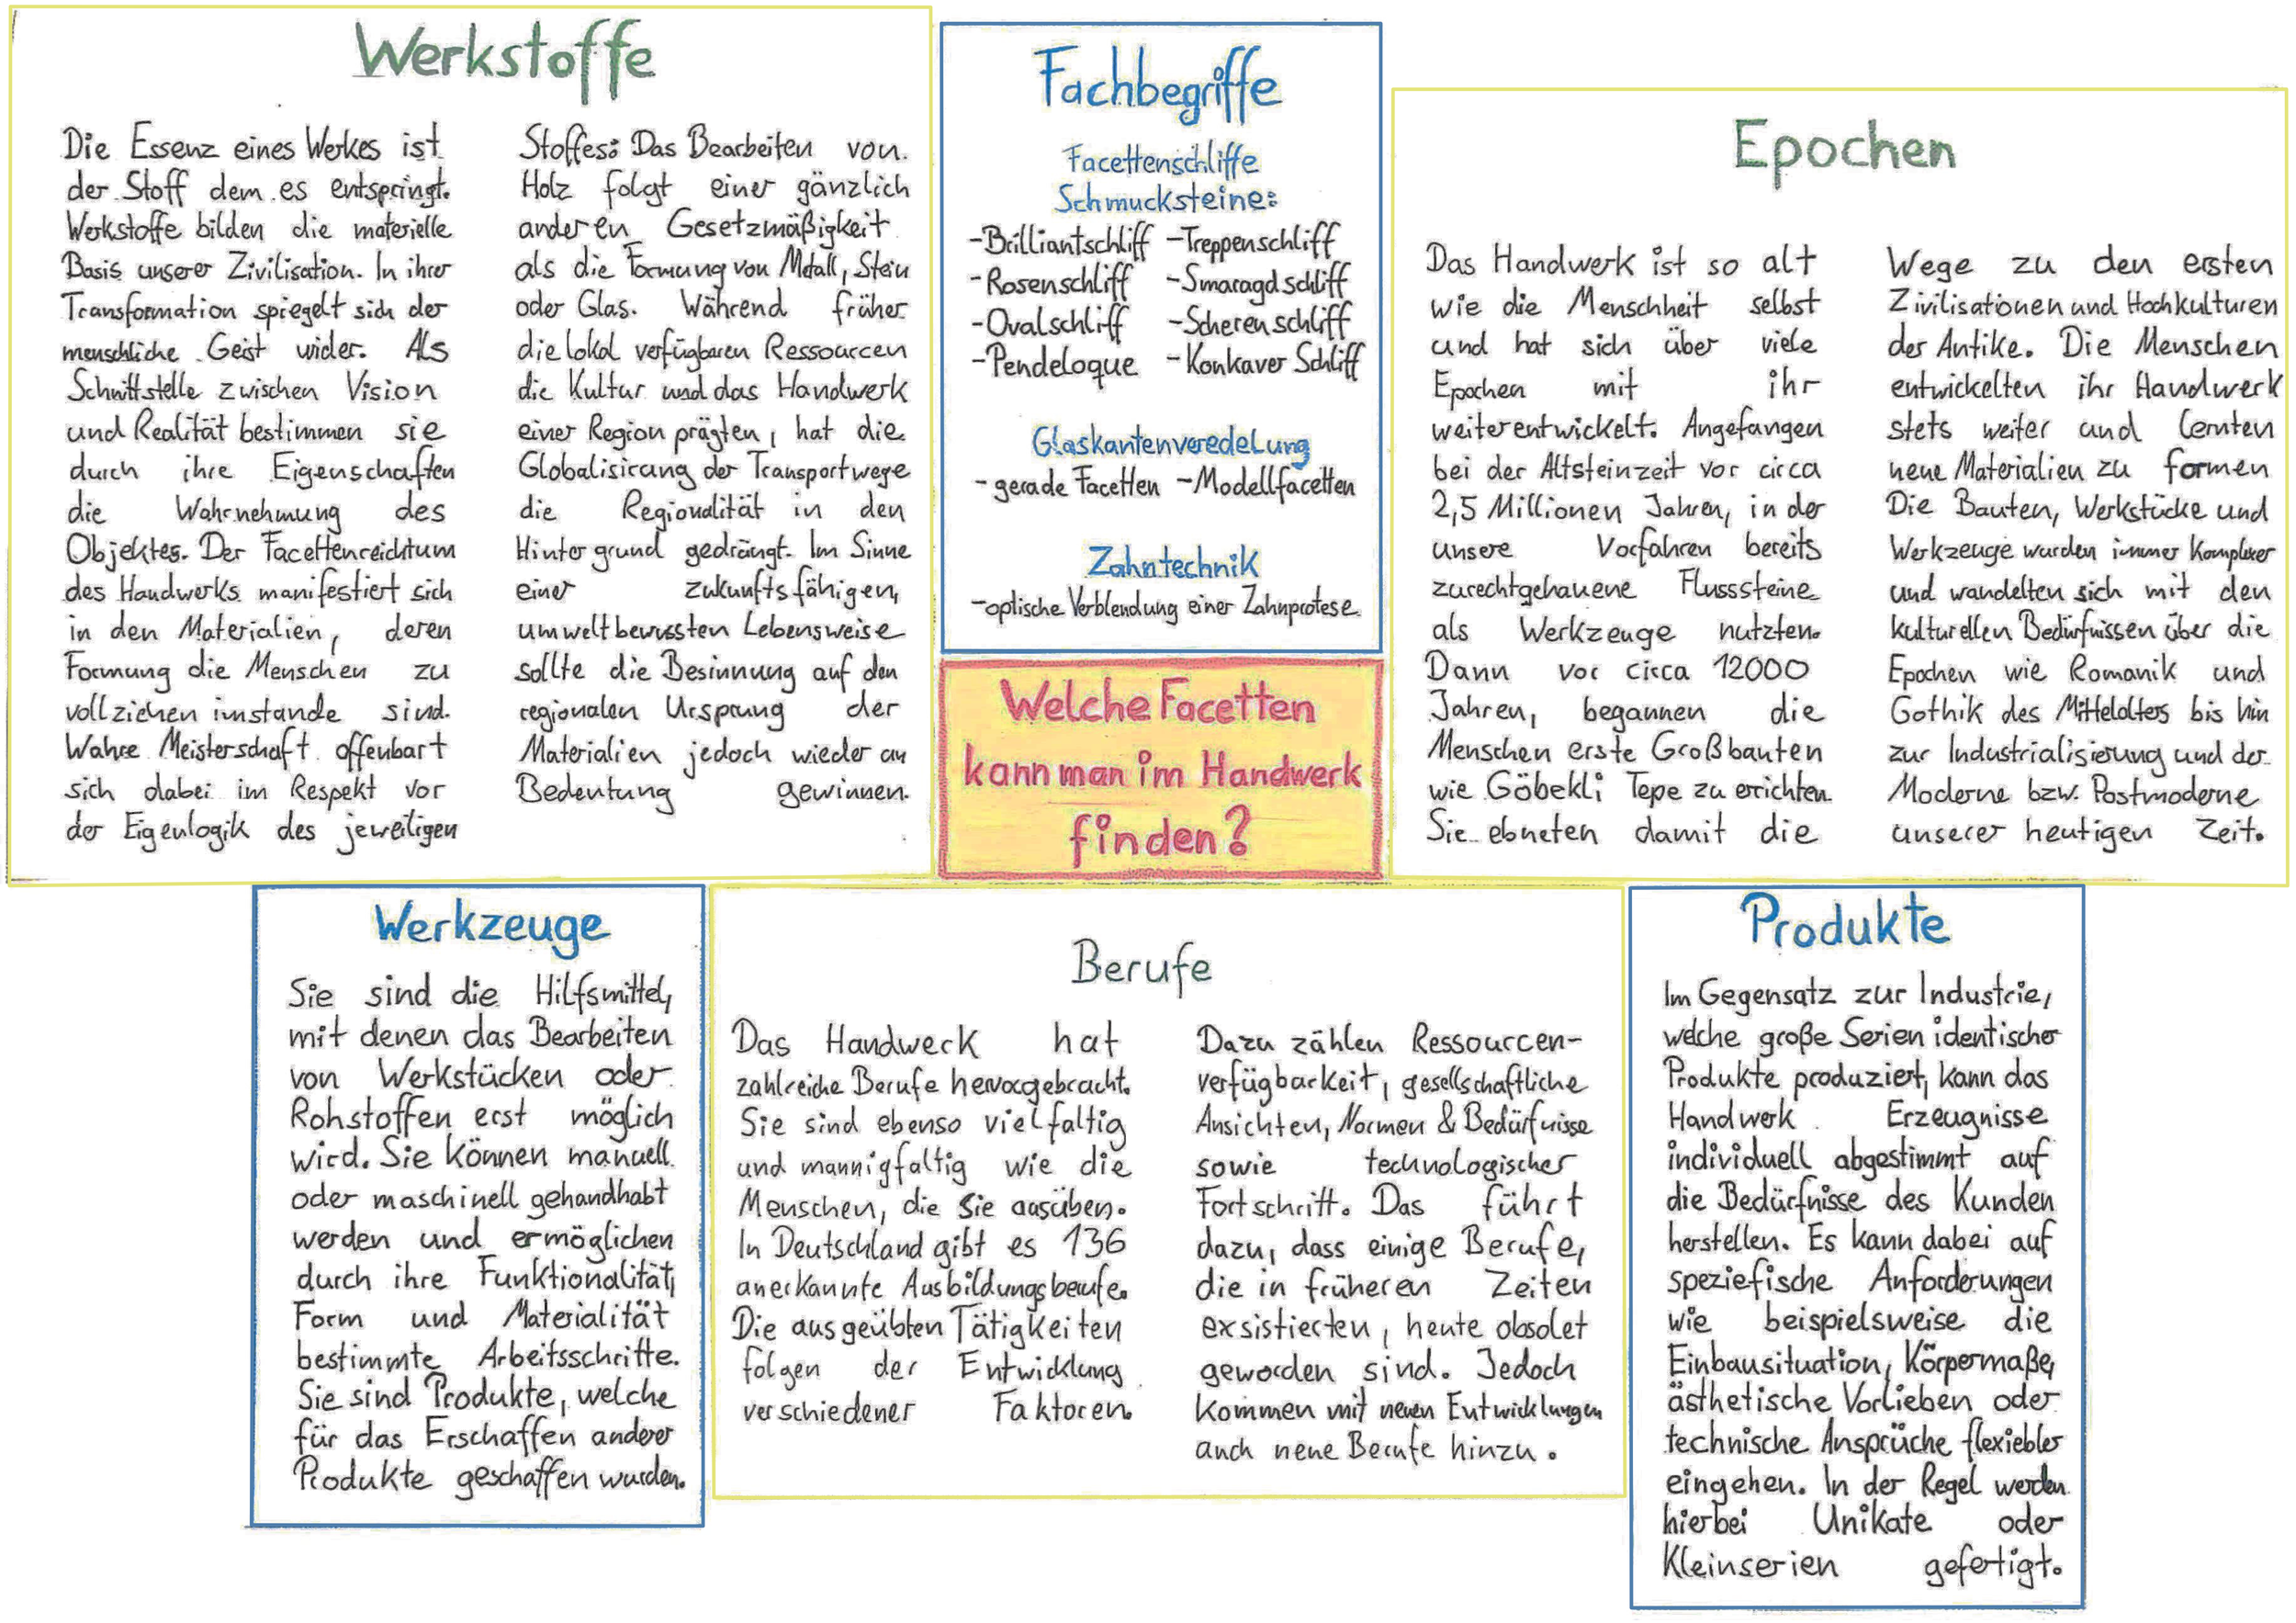 Werkstoffe
Die Essenz eines Werkes ist
der Stoff dem es entspringt.
Werkstoffe bilden die materielle
Basis unserer Zivilisation. In ihrer
Transformation spiegelt sich der
menschliche Geist wider. Als
Schnittstelle zwischen Vision
und Realität bestimmen sie
durch ihre Eigenschaften
die Wahrnehmung des
Objektes. Der Facettenreichtum
des Handwerks manifestiert sich
in den Materialien, deren
Formung die Menschen zu
vollziehen imstande sind.
Wahre Meisterschaft offenbart
sich dabei im Respekt vor
der Eigenlogik des jeweiligen
Stoffes: Das Bearbeiten von
Holz folgt einer gänzlich
anderen Gesetzmäßigkeit
als die Formung von Metall, Stein
oder Glas. Während früher
die lokal verfügbaren Ressourcen
die Kultur und das Handwerk
einer Region prägten, hat die
Globalisirung der Transportwege
die Regionalität in den
Hintergrund gedrängt. Im Sinne
einer zukunftsfähigen,
umweltbewussten Lebensweise
sollte die Besinnung auf den
regionalen Ursprung der
Materialien jedoch wieder an
Bedeutung gewinnen.
Fachbegriffe
Facettenschliffe
Schmucksteine:
-Brilliantschliff -Treppenschliff
-Rosenschliff -Smaragdschliff
-Ovalschliff -Scherenschliff
-Pendeloque -Konkaver Schliff
Glaskantenveredelung
- gerade Facetten -Modellfacetten
Zahntechnik
-optische Verblendung einer Zahnprotese
Welche Facetten
kann man im Handwerk
finden?
Epochen
Das Handwerk ist so alt
wie die Menschheit selbst
und hat sich über viele
Epochen mit ihr
weiterentwickelt. Angefangen
bei der Altsteinzeit vor circa
2,5 Millionen Jahren, in der
unsere Vorfahren bereits
zurechtgehauene Flusssteine
als Werkzeuge nutzten.
Dann vor circa 12000
Jahren, begannen die
Menschen erste Großbauten
wie Göbekli Tepe zu errichten.
Sie ebneten damit die
Wege zu den ersten
Zivilisationen und Hochkulturen
der Antike. Die Menschen
entwickelten ihr Handwerk
stets weiter und lernten
neue Materialien zu formen
Die Bauten, Werkstücke und
Werkzeuge wurden immer komplexer
und wandelten sich mit den
kulturellen Bedürfnissen über die
Epochen wie Romanik und
Gothik des Mittelalters bis hin
zur Industrialisierung und der
Moderne bzw. Postmoderne
unserer heutigen Zeit.
Werkzeuge
Sie sind die Hilfsmittel,
mit denen das Bearbeiten
von Werkstücken oder
Rohstoffen erst möglich
wird. Sie können manuell
oder maschinell gehandhabt
werden und ermöglichen
durch ihre Funktionalität,
Form und Materialität
bestimmte Arbeitsschritte.
Sie sind Produkte, welche
für das Erschaffen anderer
Produkte geschaffen wurden.
Berufe
Das Handwerk hat
zahlreiche Berufe hervorgebracht.
Sie sind ebenso vielfaltig
und mannigfaltig wie die
Menschen, die Sie ausüben.
In Deutschland gibt es 136
anerkannte Ausbildungsberufe.
Die ausgeübten Tätigkeiten
folgen der Entwicklung
verschiedener Faktoren.
Dazu zählen Ressourcen-
verfügbarkeit, gesellschaftliche
Ansichten, Normen & Bedürfnisse
sowie technologischer
Fortschritt. Das führt
dazu, dass einige Berufe,
die in früheren Zeiten
exsistierten, heute obsolet
geworden sind. Jedoch
kommen mit neuen Entwicklungen
auch neue Berufe hinzu.
Produkte
Im Gegensatz zur Industrie,
welche große Serien identischer
Produkte produziert, kann das
Handwerk Erzeugnisse
individuell abgestimmt auf
die Bedürfnisse des Kunden
herstellen. Es kann dabei auf
speziefische Anforderungen
wie beispielsweise die
Einbausituation, Körpermaße,
ästhetische Vorlieben oder
technische Ansprüche flexiebler
eingehen. In der Regel werden
hierbei Unikate oder
Kleinserien gefertigt.